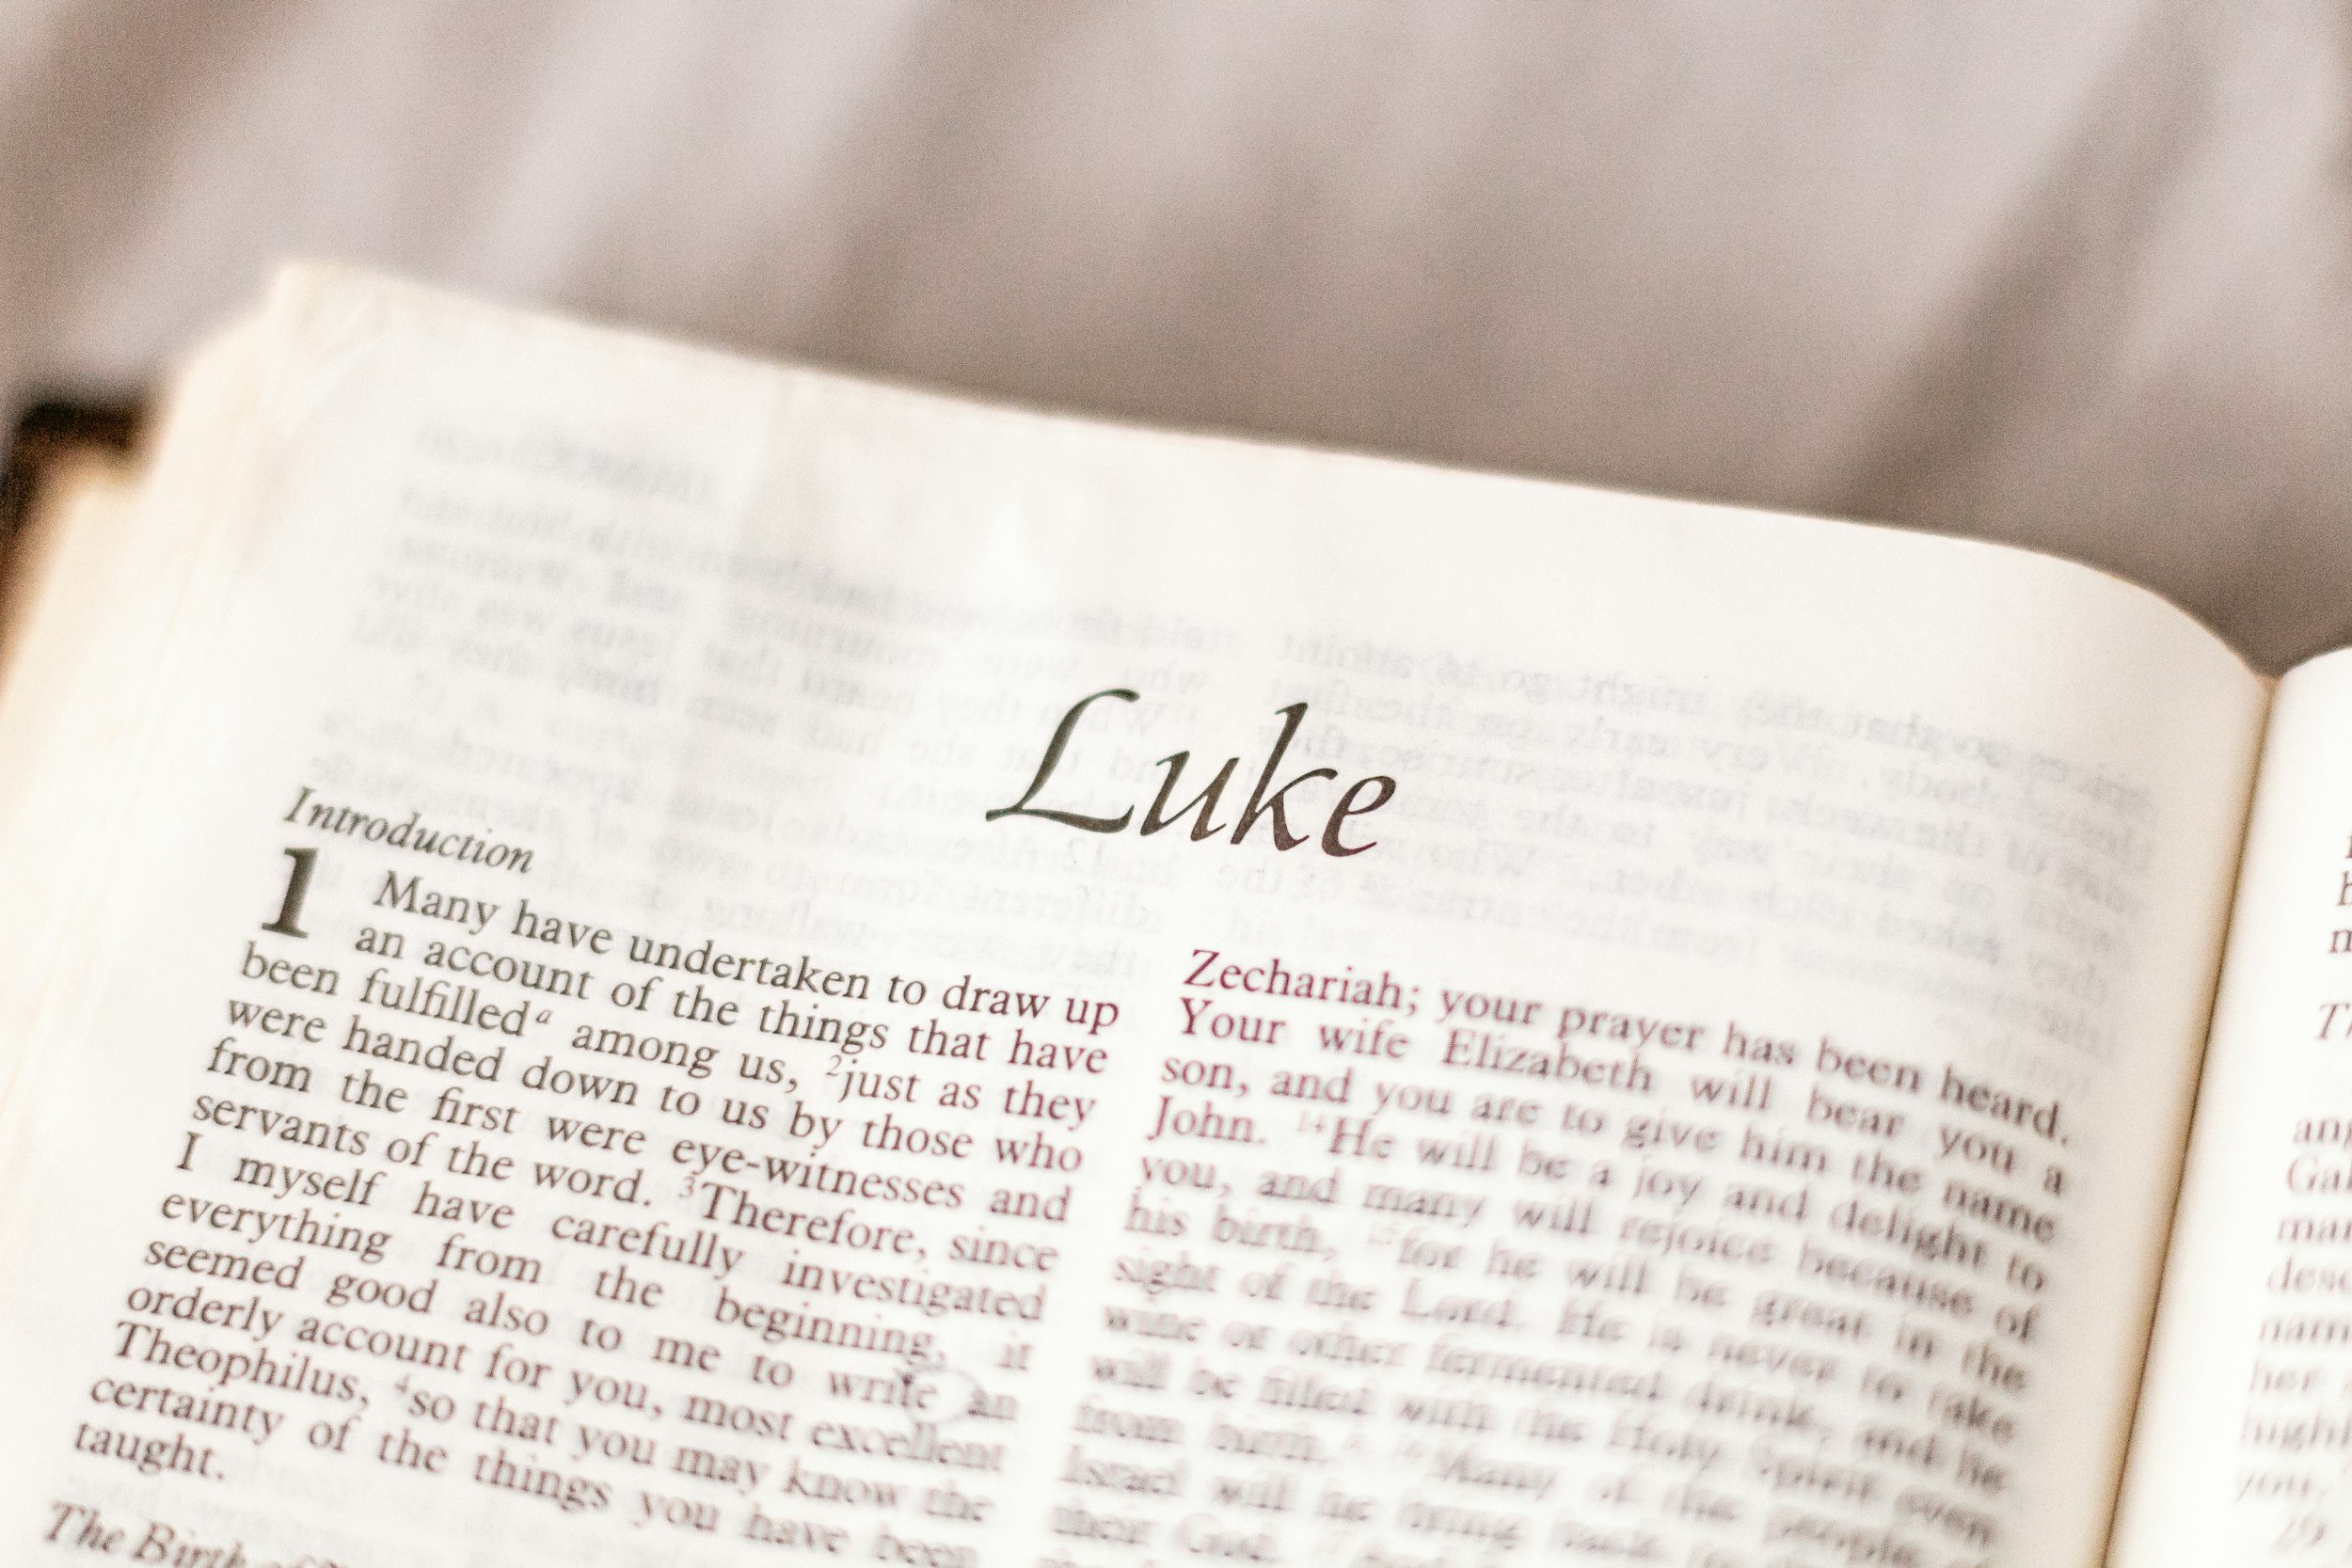 Luke
Introduction
1 Many have undertaken to draw up
an account of the things that have
been fulfilled a among us, 2 just as they
were handed down to us by those who
from the first were eye-witnesses and
servants of the word. 3 Therefore, since
I myself have carefully investigated
everything from the beginning, it
seemed good also to me to write an
orderly account for you, most excellent
Theophilus, 4 so that you may know the
certainty of the things you have been
taught.
The Birth of
Zechariah; your prayer has been heard.
Your wife Elizabeth will bear you a
son, and you are to give him the name
John. 14 He will be a joy and delight to
you, and many will rejoice because of
his birth, 15 for he will be great in the
sight of the Lord. He is never to take
wine or other fermented drink, and he
will be filled with the Holy Spirit even
from birth. 16 Many of the people of
Israel will he bring back
their God.